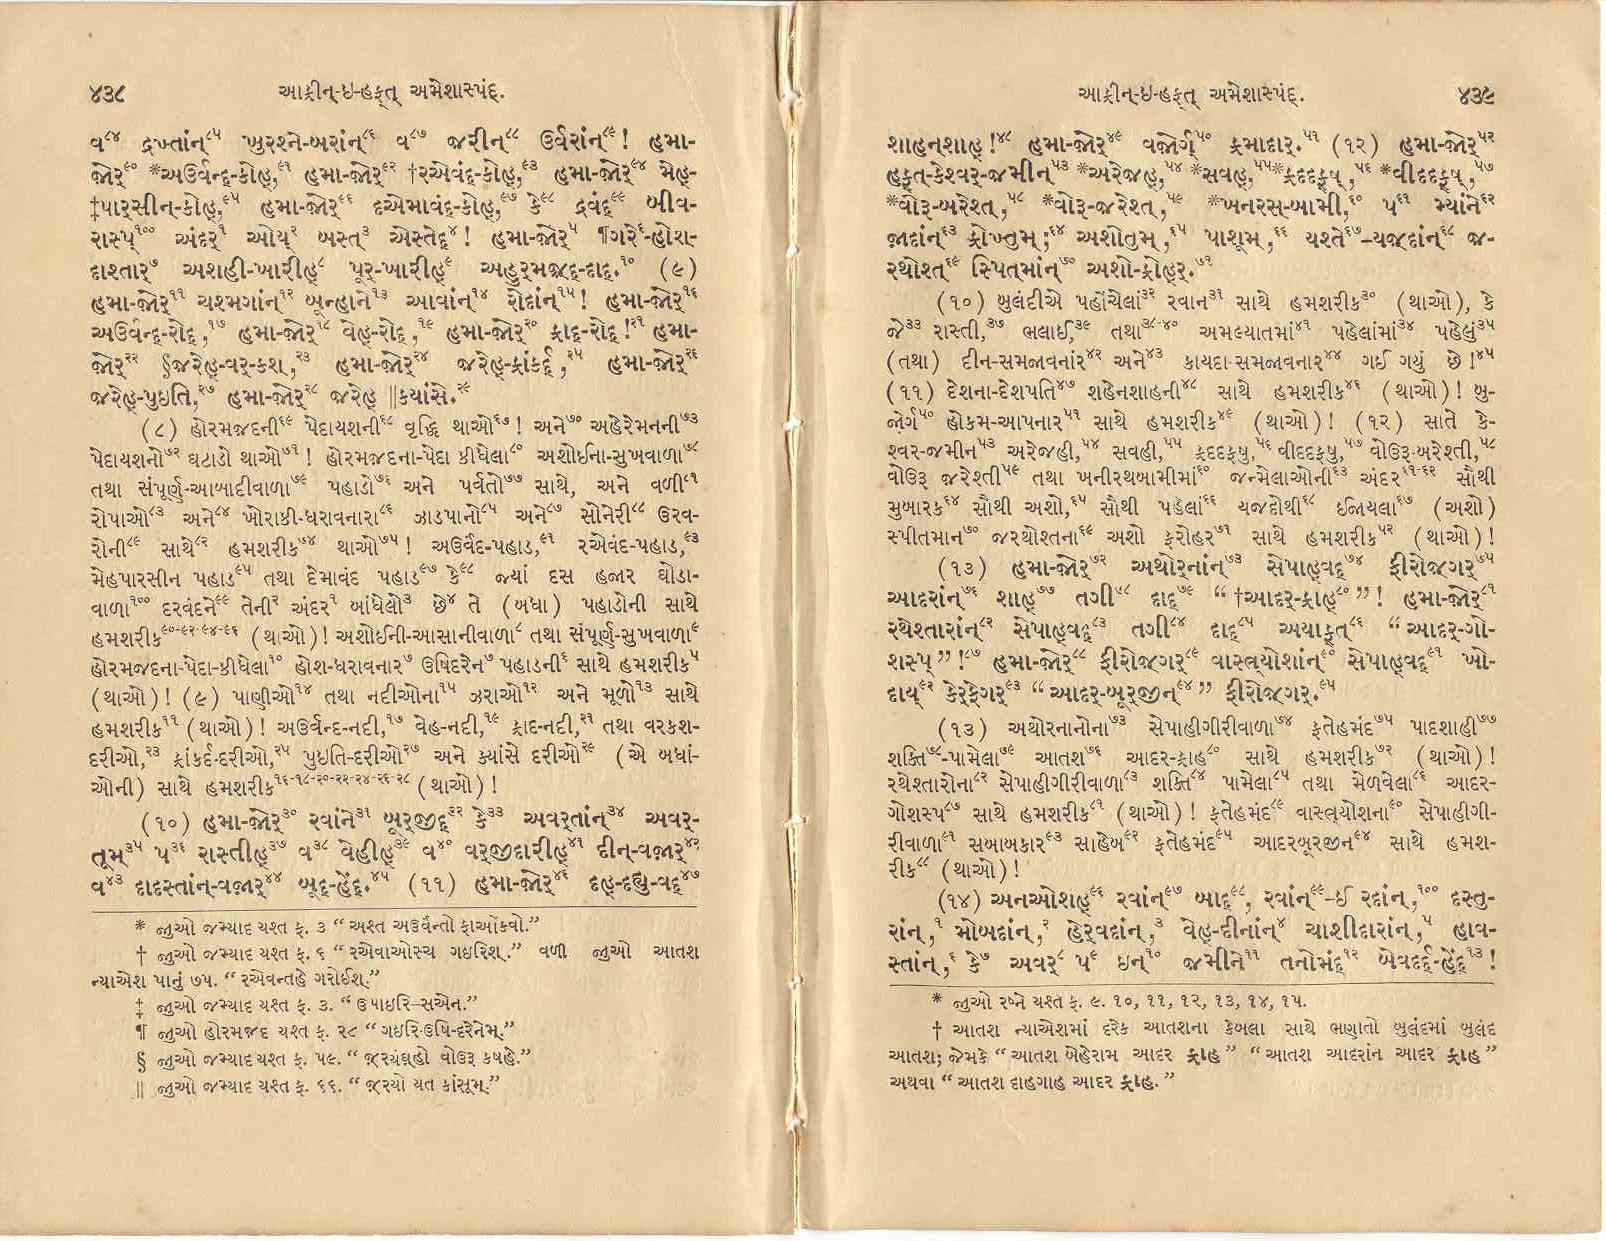 ૪૩૮ આફ્રીન્-ઇ-હફ્ત્ અમેશાસ્પંદ્.
વ૮૪ દ્રખ્તાંન્૮૫ ખુરશ્ને-બરાંન૮૬ વ૮૭ જરીન્૮૮ ઉર્વરાંન્૮૯! હમા-
જોર્૯૦ *અઉર્વન્દ્-કોહ્,૯૧ હમા-જોર્૯૨ †રએવંદ્-કોહ્,૯૩ હમા-જોર્૯૪ મેહ્-
‡પાર્સીન્-કોહ્,૯૫ હમા-જોર્૯૬ દએમાવંદ્-કોહ્,૯૭ કે૯૮ દ્રવંદ્૯૯ બીવ-
રાસ્પ્૧૦૦ અંદર્૧ ઓય્૨ બસ્ત્૩ એસ્તેદ્૪! હમા-જોર્૫ ¶ગરે૬-હોશ-
દાશ્તાર્૭ અશહી-ખારીહ્૮ પૂર્-ખારીહ્૯ અહુર્મજ્દ્-દાદ્.૧૦ (૯)
હમા-જોર્૧૧ ચશ્મગાંન્૧૨ બૂન્હાને૧૩ આવાંન્૧૪ રોદાંન્૧૫! હમા-જોર્૧૬
અઉર્વન્દ્-રોદ્,૧૭ હમા-જોર્૧૮ વેહ્-રોદ્,૧૯ હમા-જોર્૨૦ ફ્રાદ્-રોદ્!૨૧ હમા-
જોર્૨૨ §જરેહ્-વર્-કશ,૨૩ હમા-જોર્૨૪ જરેહ્-ફ્રાંકર્દ્,૨૫ હમા-જોર્૨૬
જરેહ્-પુઇતિ,૨૭ હમા-જોર્૨૮ જરેહ્ ||કયાંસે.૨૯
(૮) હોરમજદની૬૯ પેદાયશની૬૮ વૃદ્ધિ થાઓ૬૭! અને૭૦ અહેરેમનની૭૩
પેદાયશનો૭૨ ઘટાડો થાઓ૭૧! હોરમજદના-પેદા કીધેલા૮૦ અશોઈના-સુખવાળા૭૮
તથા સંપૂર્ણ-આબાદીવાળા૭૯ પહાડો૭૬ અને પર્વતો૭૭ સાથે, અને વળી૮૧
રોપાઓ૮૩ અને૮૪ ખોરાકી-ધરાવનારા૮૬ ઝાડપાનો૮૫ અને૮૭ સોનેરી૮૮ ઉરવ-
રોની૮૯ સાથે૮૨ હમશરીક૭૪ થાઓ૭૫! અઉર્વંદ-પહાડ,૯૧ રએવંદ-પહાડ,૯૩
મેહપારસીન પહાડ૯૫ તથા દેમાવંદ પહાડ૯૭ કે૯૮ જ્યાં દસ હજાર ઘોડા-
વાળા૧૦૦ દરવંદને૯૯ તેની૨ અંદર૧ બાંધેલો૩ છે૪ તે (બધા) પહાડોની સાથે
હમશરીક૯૦-૯૨-૯૪-૯૬ (થાઓ)! અશોઈની-આસાનીવાળા૮ તથા સંપૂર્ણ-સુખવાળા૯
હોરમજદના-પેદા-કીધેલા૧૦ હોશ-ધરાવનાર૭ ઉષિદરેન૭ પહાડની૬ સાથે હમશરીક૫
(થાઓ)! (૯) પાણીઓ૧૪ તથા નદીઓના૧૫ ઝરાઓ૧૨ અને મૂળો૧૩ સાથે
હમશરીક૧૧ (થાઓ)! અઉર્વન્દ-નદી,૧૭ વેહ-નદી,૧૯ ફ્રાદ-નદી,૨૧ તથા વરકશ-
દરીઓ,૨૩ ફ્રાંકર્દ-દરીઓ,૨૫ પુઇતિ-દરીઓ૨૭ અને કયાંસે દરીઓ૨૯ (એ બધાં-
ઓની) સાથે હમશરીક૧૬-૧૮-૨૦-૨૨-૨૪-૨૬-૨૮ (થાઓ)!
(૧૦) હમા-જોર્૩૦ રવાંને૩૧ બૂર્જીદ્૩૨ કે૩૩ અવર્તાંન્૩૪ અવર્-
તૂમ્૩૫ પ૩૬ રાસ્તીહ્૩૭ વ૩૮ વેહીહ્૩૯ વ૪૦ વર્જીદારીહ્૪૧ દીન્-વજાર્૪૨
વ૪૩ દાદસ્તાંન્-વજાર્૪૪ બૂદ્-હેંદ્.૪૫ (૧૧) હમા-જોર્૪૬ દહ્-દહ્યુ-વદ્૪૭
* જુઓ જમ્યાદ યશ્ત ફ. ૩ “અસ્ત અઉર્વન્તો ફાઓંકવો.”
† જુઓ જમ્યાદ યશ્ત ફ. ૬ “રએવાઓસ્ચ ગઇરિશ્.” વળી જુઓ આતશ
ન્યાએશ પાનું ૭૫. “રએવન્તહે ગરોઈશ્.”
‡ જુઓ જમ્યાદ યશ્ત ફ. ૩. “ઉપાઇરિ-સએન.”
¶ જુઓ હોરમજદ યશ્ત ફ. ૨૮ “ગઇરિ-ઉષિ-દરેનેમ્.”
§ જુઓ જમ્યાદ યશ્ત ફ. ૫૯. “જ્રયંઙ્હો વોઉરૂ કષહે.”
|| જુઓ જમ્યાદ યશ્ત ફ. ૬૬. “જ્રયો યત કાંસૂમ્.”
આફ્રીન્-ઇ-હફ્ત્ અમેશાસ્પંદ્. ૪૩૯
શાહન્શાહ્!૪૮ હમા-જોર્૪૯ વજોર્ગ્૫૦ ફ્રમાદાર્.૫૧ (૧૨) હમા-જોર્૫૨
હફ્ત્-કેશ્વર્-જમીન્૫૩ *અરેજહ્,૫૪ *સવહ્,૫૫ *ફ્રદદફ્ષ્,૫૬ *વીદદફ્ષ્,૫૭
*વોરૂ-બરેશ્ત્,૫૮ *વોરૂ-જરેશ્ત્,૫૯ *ખનરસ્-બામી,૬૦ પ૬૧ મ્યાંને૬૨
જાદાંન્૬૩ ફ્રોખ્તુમ્;૬૪ અશોતુમ્,૬૫ પાશૂમ્,૬૬ યશ્તે૬૭-યજદાંન્૬૮ જ-
રથોશ્ત૬૯ સ્પિતમાંન્૭૦ અશો-ફ્રોહર્.૭૧
(૧૦) બુલંદીએ પહોંચેલાં૩૨ રવાન૩૧ સાથે હમશરીક૩૦ (થાઓ), કે
જે૩૩ રાસ્તી,૩૭ ભલાઈ,૩૯ તથા૩૮-૪૦ અમલ્યાતમાં૪૧ પહેલાંમાં૩૪ પહેલું૩૫
(તથા) દીન-સમજાવનાંર૪૨ અને૪૩ કાયદા-સમજાવનાર૪૪ ગઈ ગયું છે!૪૫
(૧૧) દેશના-દેશપતિ૪૭ શહેનશાહની૪૮ સાથે હમશરીક૪૬ (થાઓ)! બુ-
જોર્ગ૫૦ હોકમ-આપનાર૫૧ સાથે હમશરીક૪૯ (થાઓ)! (૧૨) સાતે કે-
શ્વર-જમીન૫૩ અરેજહી,૫૪ સવહી,૫૫ ફ્રદદફષુ,૫૬ વીદદફષુ,૫૭ વોઉરૂ-બરેશ્તી,૫૮
વોઉરૂ જરેશ્તી૫૯ તથા ખનીરથબામીમાં૬૦ જન્મેલાઓની૬૩ અંદર૬૧-૬૨ સૌથી
મુબારક૬૪ સૌથી અશો,૬૫ સૌથી પહેલાં૬૬ યજદોથી૬૮ ઇજાયલા૬૭ (અશો)
સ્પીતમાન૭૦ જરથોશ્તના૬૯ અશો ફરોહર૭૧ સાથે હમશરીક૫૨ (થાઓ)!
(૧૩) હમા-જોર્૭૨ અથોર્નાંન્૭૩ સેપાહ્વદ્૭૪ ફીરોજગર્૭૫
આદરાંન્૭૬ શાહ્૭૭ તગી૭૮ દાદ્૭૯ “†આદર્-ફ્રાહ્૮૦”! હમા-જોર્૮૧
રથેશ્તારાંન્૮૨ સેપાહ્વદ્૮૩ તગી૮૪ દાદ્૮૫ અયાફ્ત્૮૬ “આદર્-ગો-
શસ્પ્”!૮૭ હમા-જોર્૮૮ ફીરોજગર્૮૯ વાસ્ત્ર્યોશાંન્૯૦ સેપાહ્વદ્૯૧ ખો-
દાય્૯૨ કેર્ફેગર્૯૩ “આદર્-બૂર્જીન્૯૪” ફીરોજગર્.૯૫
(૧૩) અથોરનાનોના૭૩ સેપાહીગીરીવાળા૭૪ ફતેહમંદ૭૫ પાદશાહી૭૭
શક્તિ૭૮-પામેલા૭૯ આતશ૭૬ આદર-ફ્રાહ૮૦ સાથે હમશરીક૭૨ (થાઓ)!
રથેશ્તારોના૮૨ સેપાહીગીરીવાળા૮૩ શક્તિ૮૪ પામેલા૮૫ તથા મેળવેલા૮૬ આદર-
ગોશસ્પ૮૭ સાથે હમશરીક૮૧ (થાઓ)! ફતેહમંદ૮૯ વાસ્ત્ર્યોશના૯૦ સેપાહીગી-
રીવાળા૯૧ સબાબકાર૯૩ સાહેબ૯૨ ફતેહમંદ૯૫ આદરબૂરજીન૯૪ સાથે હમશ-
રીક૮૮ (થાઓ)!
(૧૪) અનઓશહ્૯૬ રવાંન્૯૭ બાદ્૯૮, રવાંન્૯૯-ઈ રદાંન્,૧૦૦ દસ્તુ-
રાંન્,૧ મોબદાંન્,૨ હેર્વદાંન્,૩ વેહ્-દીનાંન્૪ ચાશીદારાંન્,૫ હાવ-
સ્તાંન્,૬ કે૭ અવર્૮ પ૯ ઇન્૧૦ જમીને૧૧ તનોમંદ્૧૨ બેવદર્દ્-હેંદ્૧૩!
* જુઓ રષ્ને યશ્ત ફ. ૯. ૧૦, ૧૧, ૧૨, ૧૩, ૧૪, ૧૫.
† આતશ ન્યાએશમાં દરેક આતશના કેબલા સાથે ભણાતો બુલંદમાં બુલંદ
આતશ; જેમકે “આતશ બેહેરામ આદર ફ્રાહ” “આતશ આદરાંન આદર ફ્રાહ”
અથવા “આતશ દાહગાહ આદર ફ્રાહ.”